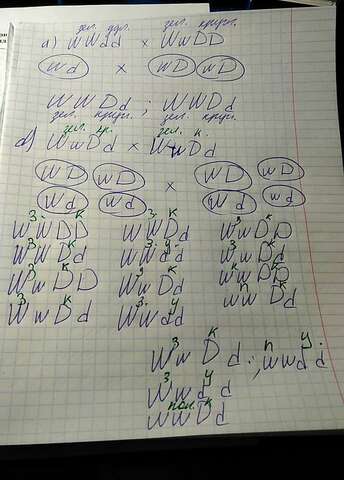 зел. удл. зел. кругл.
а) WWdd × WwDD
Wd × WD wD
WWDd ; WwDd
зел. кругл. зел. кругл.
зел. кр. зел. к.
WwDd × WwDd
WD wD WD wD
×
Wd wd Wd wd
З К З К З К
WWDD WWDd WwDD
З К З У З К
WWDd WWdd WwDd
З К З К К
WwDD WwDd wwDD
З К З У п К
WwDd Wwdd wwDd
З К п У
WwDd ; wwdd
З У
Wwdd
пол. К
wwDd